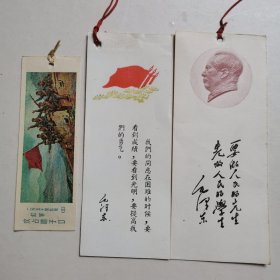 攻占腊子口
我們的同志在困难的时候，要
看到成績，要看到光明，要提高我
們的勇气。
毛泽东
要做人民的先生
先做人民的学生
毛泽东